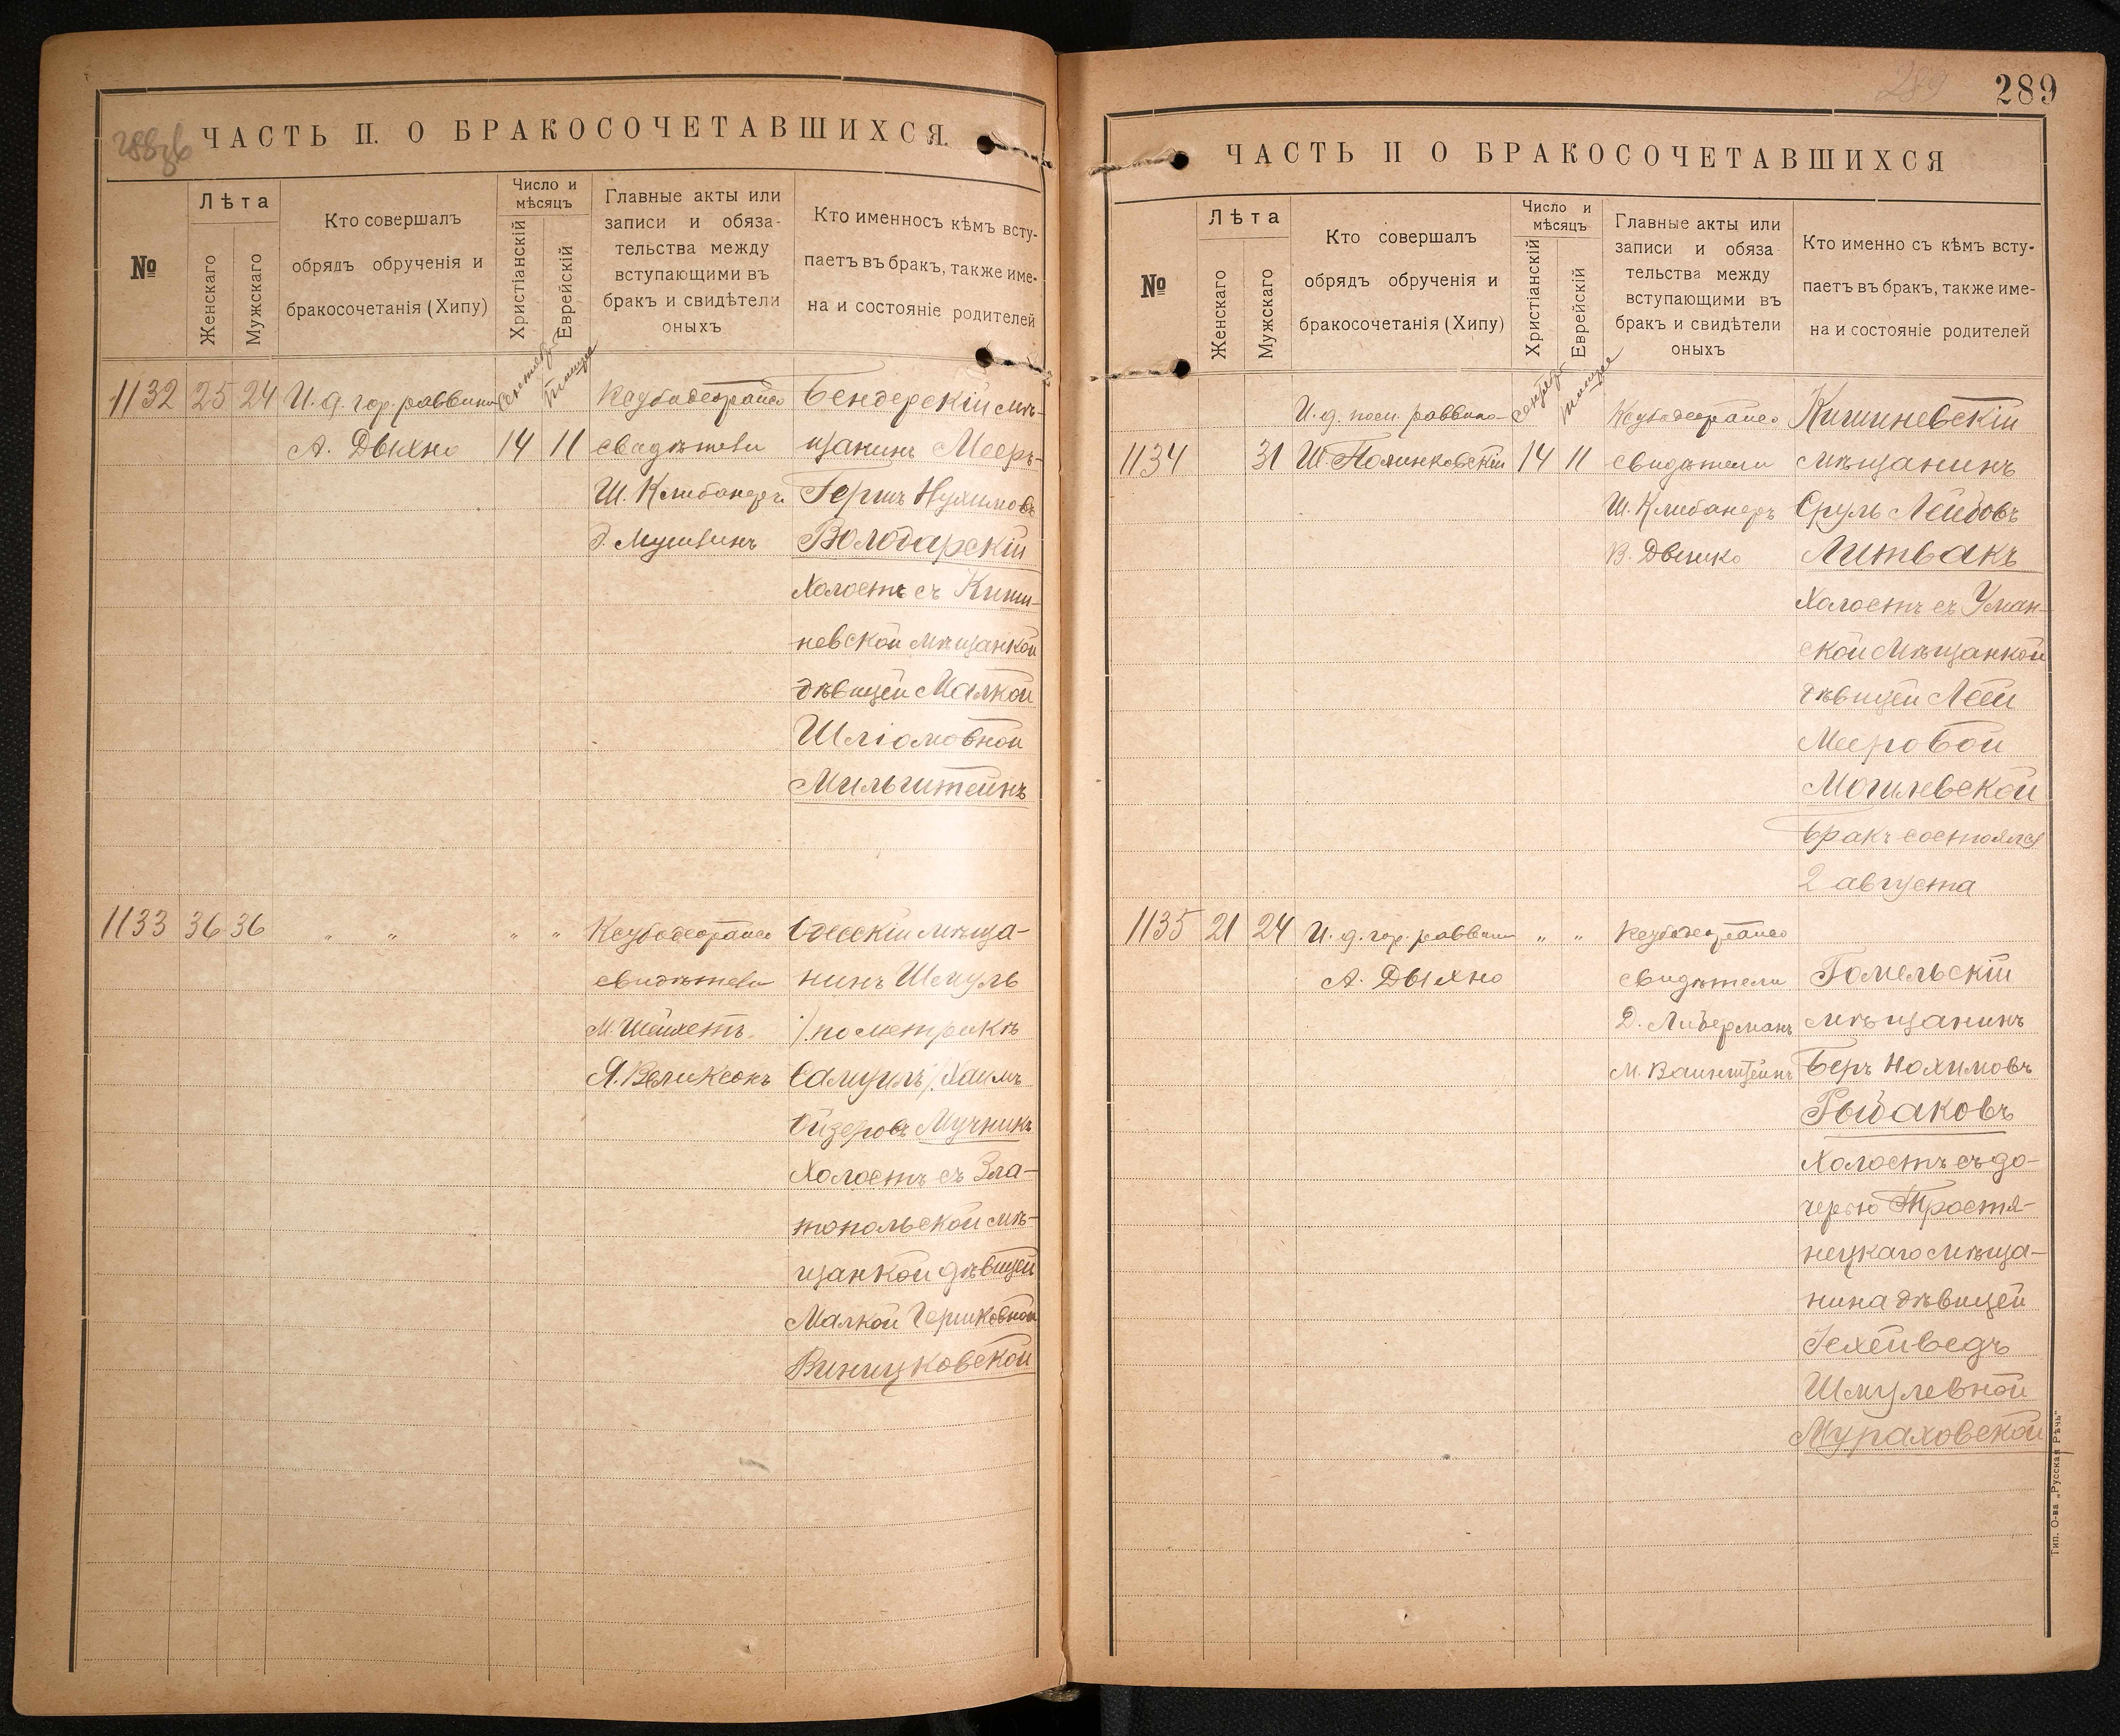 288об
ЧАСТЬ II. О БРАКОСОЧЕТАВШИХСЯ.
№
Лѣта
Женскаго
Мужскаго
Кто совершалъ
обрядъ обрученія и
бракосочетанія (Хипу)
Число и
мѣсяцъ
Христіанскій
Еврейскій
Главные акты или
записи и обяза-
тельства между
вступающими въ
бракъ и свидѣтели
оныхъ
Кто именносъ кѣмъ всту-
паетъ въ бракъ, также име-
на и состояніе родителей
1132 25 24 И. д. гор. раввина
А. Дыхно
14 11
свидѣтели
Ш. Клибанеръ
Бендерскій мѣ-
щанинъ Мееръ-
Гершъ Нухимовъ
Володарскій
Холостъ съ Киши-
невской мѣщанкой
дѣвицей Малкой
Шліомовной
Мильштейнъ
1133 36 36 " " " "
свидѣтели
М. Шейхетъ
Я. Великсонъ
Одесскій мѣща-
нинъ Шмуль
/по метрикѣ
Самуилъ/ Хаимъ
Ойзеровъ Мучникъ
Холостъ съ Зла-
топольской мѣ-
щанкой дѣвицей
Малкой Гершковной
Виницковской
289
289
ЧАСТЬ II О БРАКОСОЧЕТАВШИХСЯ
№
Лѣта
Женскаго
Мужскаго
Кто совершалъ
обрядъ обрученія и
бракосочетанія (Хипу)
Число и
мѣсяцъ
Христіанскій
Еврейскій
Главные акты или
записи и обяза
тельства между
вступающими въ
бракъ и свидѣтели
оныхъ
Кто именно съ кѣмъ всту-
паетъ въ бракъ, также име-
на и состояніе родителей
1134 31
И. д. пом. раввина
Ш. Полинковскій
14 11
свидѣтели
Ш. Клибанеръ
Кишиневскій
мѣщанинъ
Сруль Лейбовъ
Литвакъ
Холостъ съ Уман-
ской мѣщанкой
дѣвицей Леей
Мееровой
Могилевской
Бракъ состоялся
2 августа
1135 21 24 И. д. гор. раввина " "
А. Дыхно
свидѣтели
Д. Либерманъ
М. Вайнштейнъ
Гомельскій
мѣщанинъ
Беръ Нохимовъ
Рыбаковъ
Холостъ съ до-
черью Тростя-
нецкаго мѣща-
нина дѣвицей
Іехейведъ
Шмулевной
Мураховской
Тип. О-ва „Русская Рѣчь"